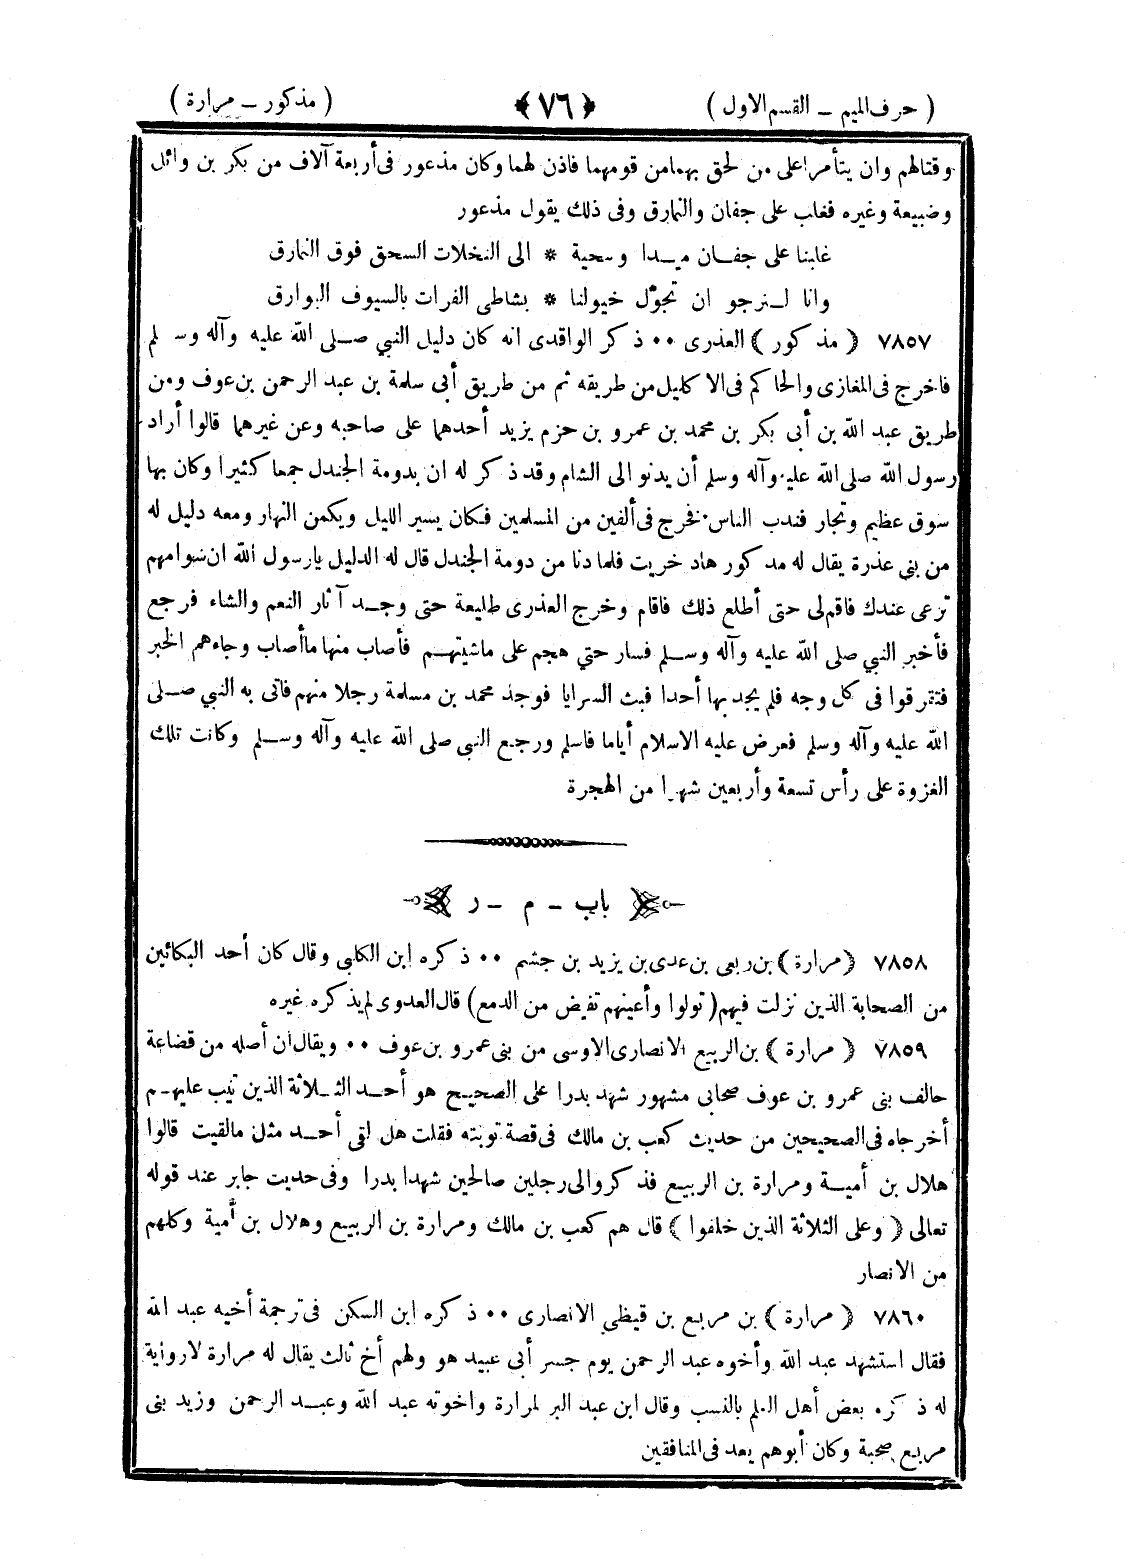 ( حرف الميم – القسم الاول ) ﴿ ٧٦ ﴾ ( مذكور – مرارة )
وقتالهم وان يتأمرا على من لحق بهما من قومهما فاذن لهما وكان مذعور فى أربعة آلاف من بكر بن وائل
وضبيعة وغيره فغلب على جفان والنمارق وفى ذلك يقول مذعور
غلبنا على جفان ميدا وسحية * الى النخلات السحق فوق النمارق
وانا لنرجو ان تجوّل خيولنا * بشاطى الفرات بالسيوف البوارق
٧٨٥٧ ﴿ مذكور ﴾ العذرى ٠٠ ذكر الواقدى انه كان دليل النبي صلى الله عليه وآله وسلم
فاخرج فى المغازى والحاكم فى الاكليل من طريقه ثم من طريق أبى سلمة بن عبد الرحمن بن عوف ومن
طريق عبد الله بن أبى بكر بن محمد بن عمرو بن حزم يزيد أحدهما على صاحبه وعن غيرهما قالوا أراد
رسول الله صلى الله عليه وآله وسلم أن يدنو الى الشام وقد ذكر له ان بدومة الجندل جمعا كثيرا وكان بها
سوق عظيم وتجار فندب الناس فخرج فى ألفين من المسلمين فكان يسير الليل ويكمن النهار ومعه دليل له
من بنى عذرة يقال له مدكور هاد خريت فلما دنا من دومة الجندل قال له الدليل يارسول الله ان سوامهم
ترعى عندك فاقم لى حتى أطلع ذلك فاقام وخرج العذرى طليعة حتى وجد آثار النعم والشاء فرجع
فأخبر النبي صلى الله عليه وآله وسلم فسار حتي هجم على ماشيتهم فأصاب منها ماأصاب وجاءهم الخبر
فتفرقوا فى كل وجه فلم يجد بها أحدا فبث السرايا فوجد محمد بن مسلمة رجلا منهم فاتى به النبي صلى
الله عليه وآله وسلم فعرض عليه الاسلام أياما فاسلم ورجع النبى صلى الله عليه وآله وسلم وكانت تلك
الغزوة على رأس تسعة وأربعين شهرا من الهجرة
باب – م – ر
٧٨٥٨ ﴿ مرارة ﴾ بن ربعى بن عدى بن يزيد بن جشم ٠٠ ذكره ابن الكلبى وقال كان أحد البكائين
من الصحابة الذين نزلت فيهم ( تولوا وأعينهم تفيض من الدمع ) قال العدوى لم يذكره غيره
٧٨٥٩ ﴿ مرارة ﴾ بن الربيع الانصارى الاوسى من بنى عمرو بن عوف ٠٠ ويقال ان أصله من قضاعة
حالف بنى عمرو بن عوف صحابى مشهور شهد بدرا على الصحيح هو أحد الثلاثة الذين تيب عليهم
أخرجاه فى الصحيحين من حديث كعب بن مالك فى قصة توبته فقلت هل لقى أحد مثل مالقيت قالوا
هلال بن أمية ومرارة بن الربيع فذكروالى رجلين صالحين شهدا بدرا وفى حديت جابر عند قوله
تعالى ﴿ وعلى الثلاثة الذين خلفوا ﴾ قال هم كعب بن مالك ومرارة بن الربيع وهلال بن أُميَّة وكلهم
من الانصار
٧٨٦٠ ﴿ مرارة ﴾ بن مربع بن قيظى الانصارى ٠٠ ذكره ابن السكن فى ترجمة أخيه عبد الله
فقال استشهد عبد الله وأخوه عبد الرحمن يوم جسر أبى عبيد هو ولهم أخ ثالث يقال له مرارة لا رواية
له ذكره بعض أهل العلم بالنسب وقال ابن عبد البر لمرارة واخوته عبد الله وعبد الرحمن وزيد بنى
مربع صحبة وكان أبوهم يعد فى المنافقين